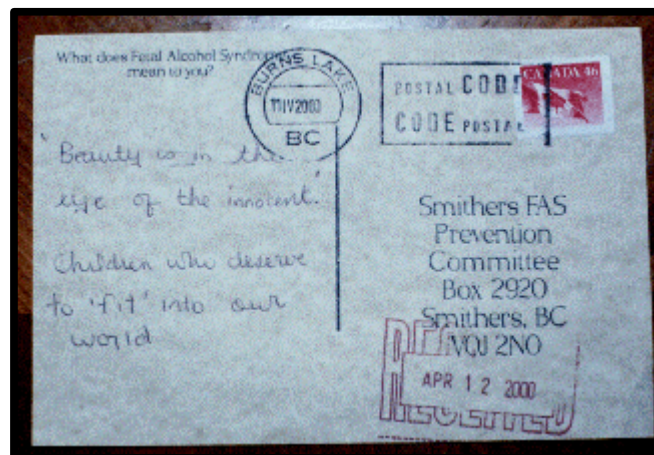 What does Fetal Alcohol Syndrome
mean to you?
BURNS LAKE
11 IV 2000
BC
POSTAL CODE
CODE POSTAL
CANADA 46
"Beauty is in the
eye of the innocent."
Children who deserve
to 'fit' into our
world
Smithers FAS
Prevention
Committee
Box 2920
Smithers, BC
V0J 2N0
RECEIVED
APR 12 2000
RECEIVED